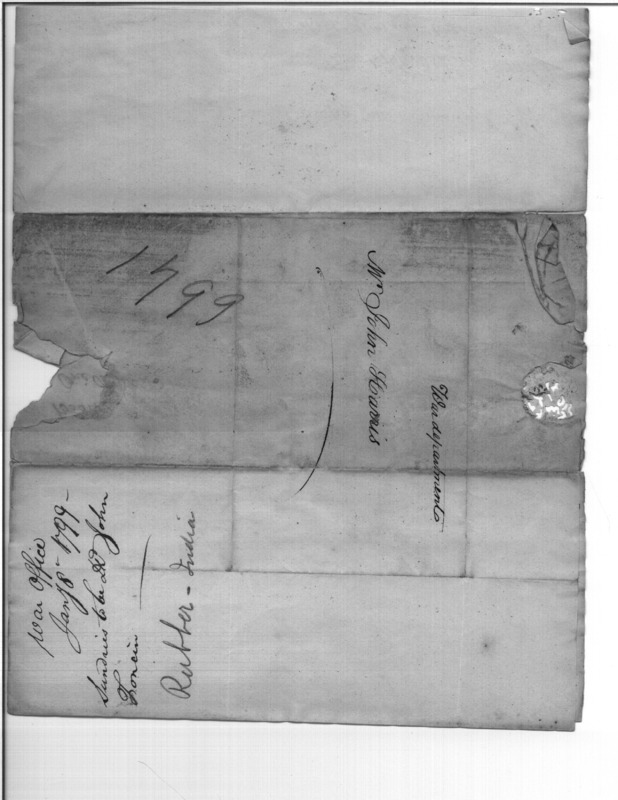 1799
Mr John Harris
War department
War Office
Jany 8th 1799 -
Sundries to be DD John
Rubber - India